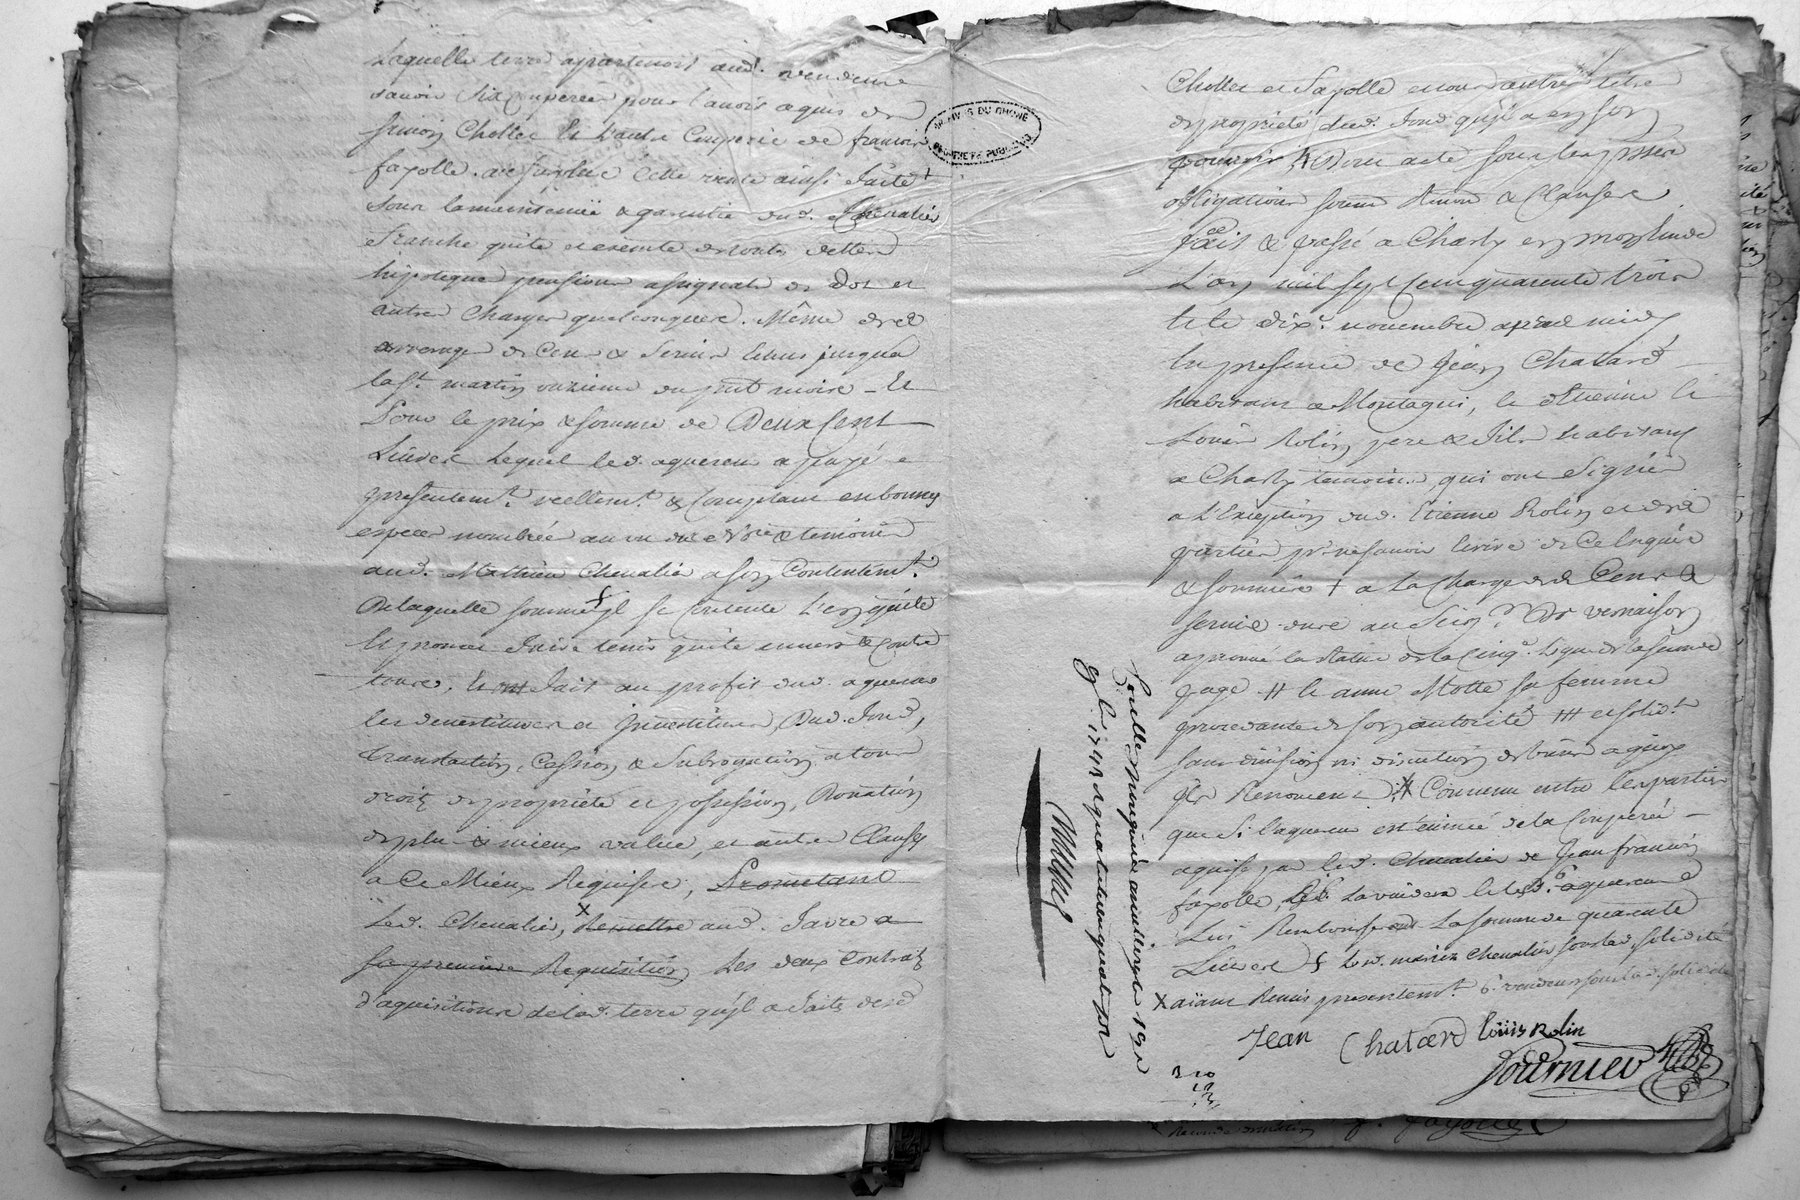 Laquelle terre apartenoit aud. vendeur
savoir six couperées pour l'avoir aquis de
Simon Chollet Et l'autre Couperie de francois
fayolle. cette vente ainsi faite +
sous la maintenüe & garantie dud. Chevalier
franche quite et exemte de toutes dettes
hipoteque pensions assignats de Dot et
autres Charges quelconques. Même des
arrerage de Cens & Servis jusqua
la St. martin onzieme du pnt mois - Et
Pour le prix & somme de Deux Cent
Livres Lequel led. aquereur a payé
presentemt. reellemt. & Comptant en bonnes
especes nombrée au vu du & temoins
aud. Mathieu Chevalier a son Contentemt.
De laquelle somme il se Contente L'en quite
Et promet faire tenir quite envers & Contre
tous, Et fait au profit dud. aquereur
les devestitures et Jnvestitures Dud. fond,
translation, Cession & Subrogation a tous
droits de propriété et possession, Donation
de plus & mieux value, et autres Clauses
a Ce Mieux Requises, Prometant
Led. Chevalier, x Remettre aud. favre a
sa premiere Requisition Les deux Contrats
d'aquisitions de lad. terre qu'jl a faits desd.
ARCHIVES DU RHONE
PROPRIETE PUBLIQUE
Chollet et fayolle et tout autre titre
de propriété dud. fond qu'jl a en son
pouvoir, Dont acte
obligations soum. Renon. & Clauses
fait & passé a Charly en mon Etude
L'an mil sept Cent quarente trois
Et le dixe. novembre apres midy
En presence de Jean Chatard
habitant a Montagni, & Etienne &
Louis Rolin pere & fils habitants
a Charly temoins qui ont Signé
a L'Exception dud. Etienne Rolin et des
parties pr. ne savoir Ecrire de Ce Enquis
& sommés + a la Charge de Cens &
servis dus au Seigr. De vernaison
aprouvé la Rature de la Cinqe. ligne de la seconde
page # & anne Motte sa femme
procedante de son autorité ### et solidt.
sans division ni discution de biens a quoy
jls Renoncent x Convenu entre les parties
que Si l'aquereur est evincé de la Couperée
aquise par led. Chevalier de Jean francois
fayolle Le vendeur
Lui Remboursera La somme de quarente
Livres Led. mariez Chevalier sous lad. solidité
x aïant Remis presentemt.
Jean Chatard Louis Rolin
fournier
9bre 1743 a quatatieuquatzor